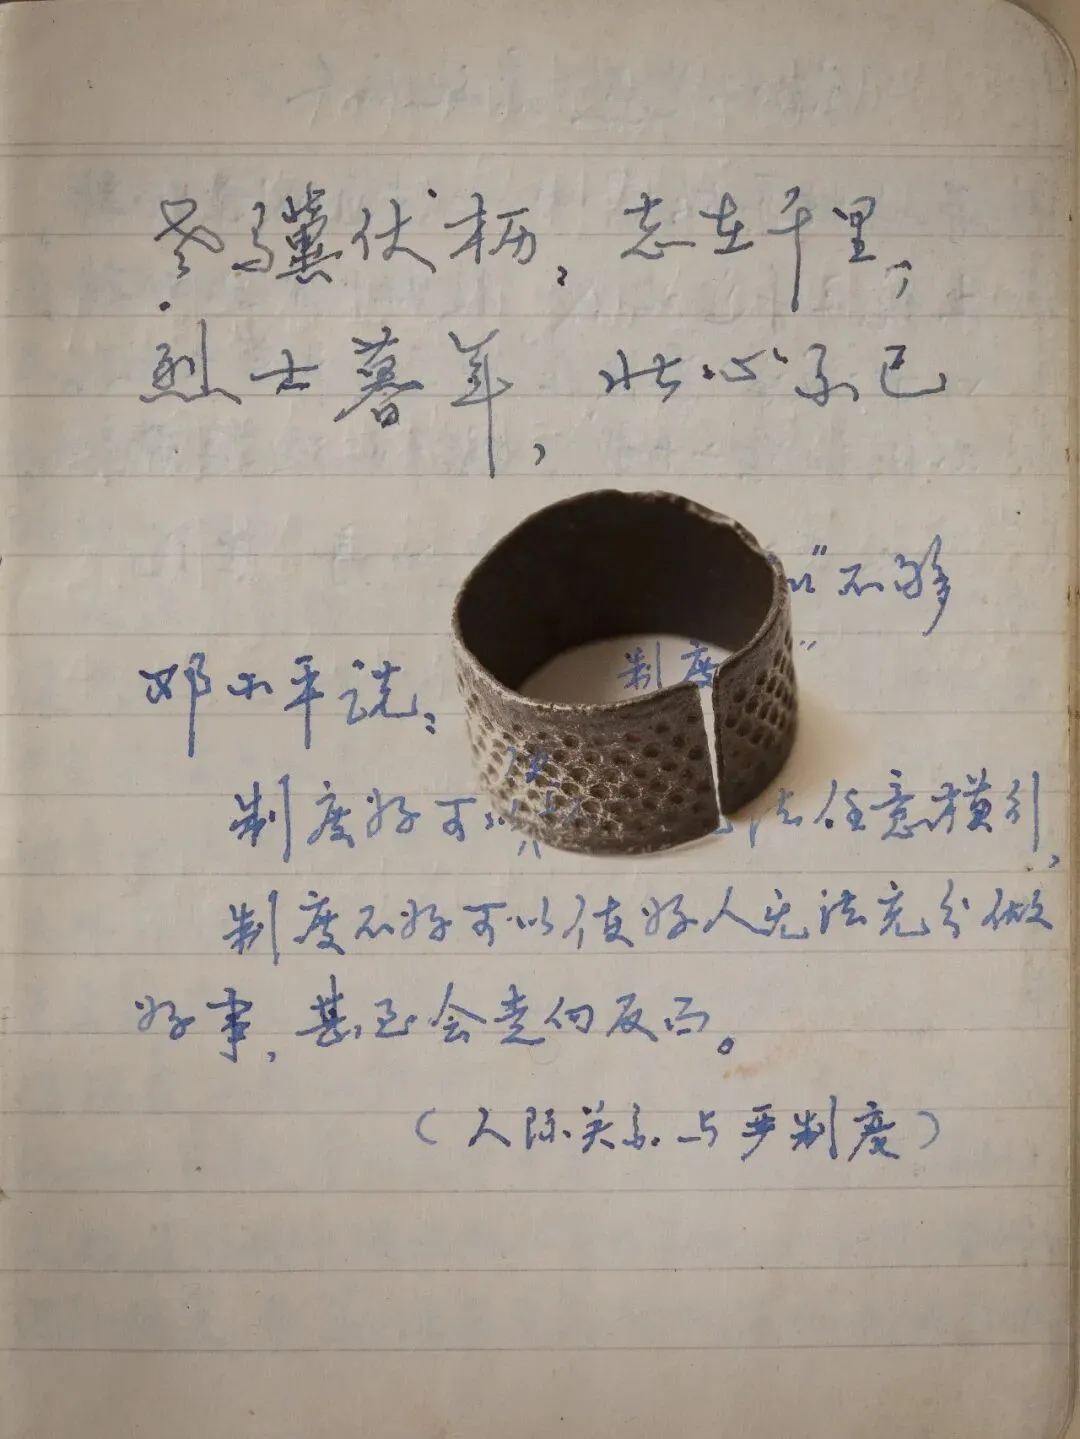 老骥伏枥，志在千里，
烈士暮年，壮心不已
"不够
邓小平说：
制度"
制度好可以 法任意横行，
制度不好可以使好人无法充分做
好事，甚至会走向反面。
（人际关系与严制度）